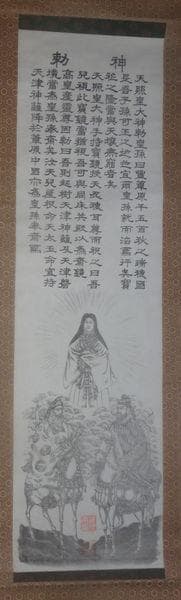 神勅
天照皇大神勅皇孫曰豊葦原千五百秋之瑞穂國
是吾子孫可王之地也宜爾皇孫就而治焉行矣寶
祚之隆當與天壤無窮者矣
天照皇大神手持寶鏡授天忍穂耳尊而祝之曰吾
兒視此寶鏡當猶視吾可與同床共殿以為齋鏡
高皇産靈尊因勅曰吾則起樹天津神籬及天津磐
境當為皇孫奉齋矣汝天兒屋根命天太玉命宜持
天津神籬降於葦原中國亦為皇孫奉齋焉